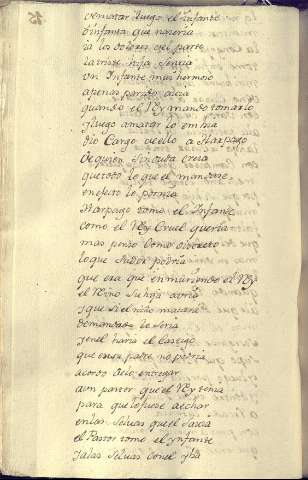 rematar luego el infante
o infanta que naceria
a los dolores del parto
la triste hija
un Infante muy hermoso
apenas parido avia
quando el Rey mando tomarlo
y luego amatar lo embia
dio Cargo dello a Harpago
De quien creia
que todo lo que el mandase
en efecto lo pornia
Harpago tomo el Infante
como el Rey Cruel queria
mas penso Como discreto
lo que suceder podria
que era que en muriendo el Rey
el Reyno Su hija avria
y que si el niño matase
demandado le seria
y en el haria el castigo
que en su padre no podria
acordo de lo entregar
a un pastor que el Rey tenia
para que lo fuese a echar
en las Selvas que el Savia
el Pastor tomo el ynfante
y a las Selvas Con el yba